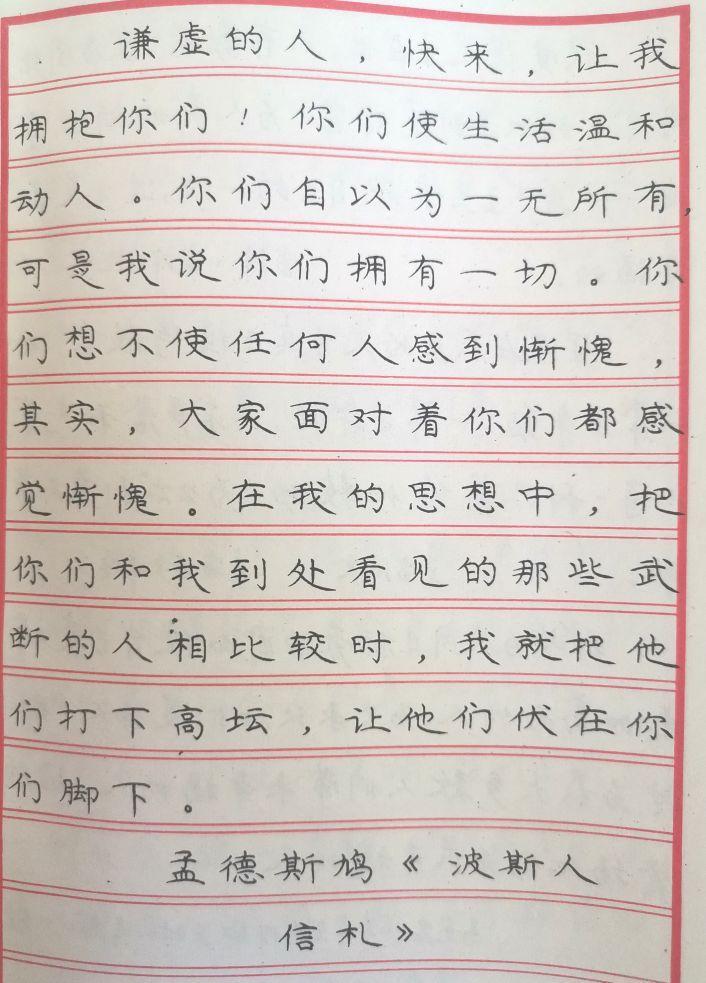 谦虚的人，快来，让我
拥抱你们！你们使生活温和
动人。你们自以为一无所有，
可是我说你们拥有一切。你
们想不使任何人感到惭愧，
其实，大家面对着你们都感
觉惭愧。在我的思想中，把
你们和我到处看见的那些武
断的人相比较时，我就把他
们打下高坛，让他们伏在你
们脚下。
孟德斯鸠《波斯人
信札》